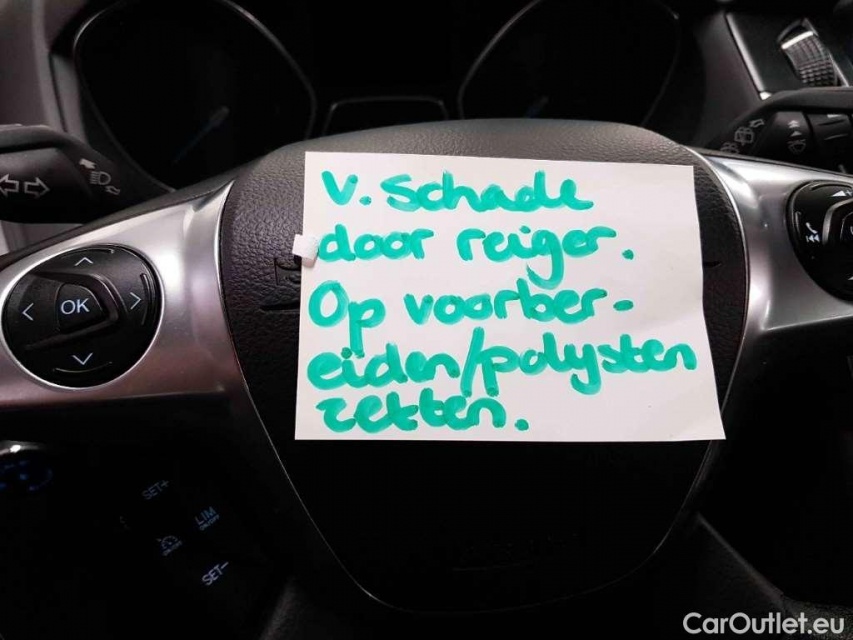 V. Schade
door reiger.
Op voorber-
eiden/polijsten
zetten.
OK
SET+
LIM
ON/OFF
SET-
CarOutlet.eu